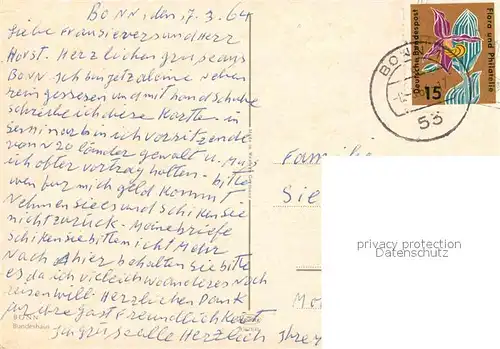 BONN, den 7.3.64
Liebe und Herr
Horst. Herzlichen gruse aus
BONN. Ich bin jetz alaine neben
rein gesesen und mit handschuhe
schreibe ich diese Kartte in
Seminar bin ich vorsitzende
von 20 länder gewält u. Mus
ich ofter vortrag halten - bitte
wen fur mich geld kommt
Nehmen sie es und schiken sie
nicht zurück - Meine briefe
schiken sie bitte nicht Mehr
Nach hier behalten sie bitte
es da ich vileich wo anderes Nach
reisen will. Herzlichen Dank
für ihre gast Freundlichkeit
Ich grüse alle Herzlich Ihre
BONN
Bundeshaus
Deutsche Bundespost
Flora und Philatelie
15
BONN
53
Familie
Sie
Mo
privacy protection
Datenschutz